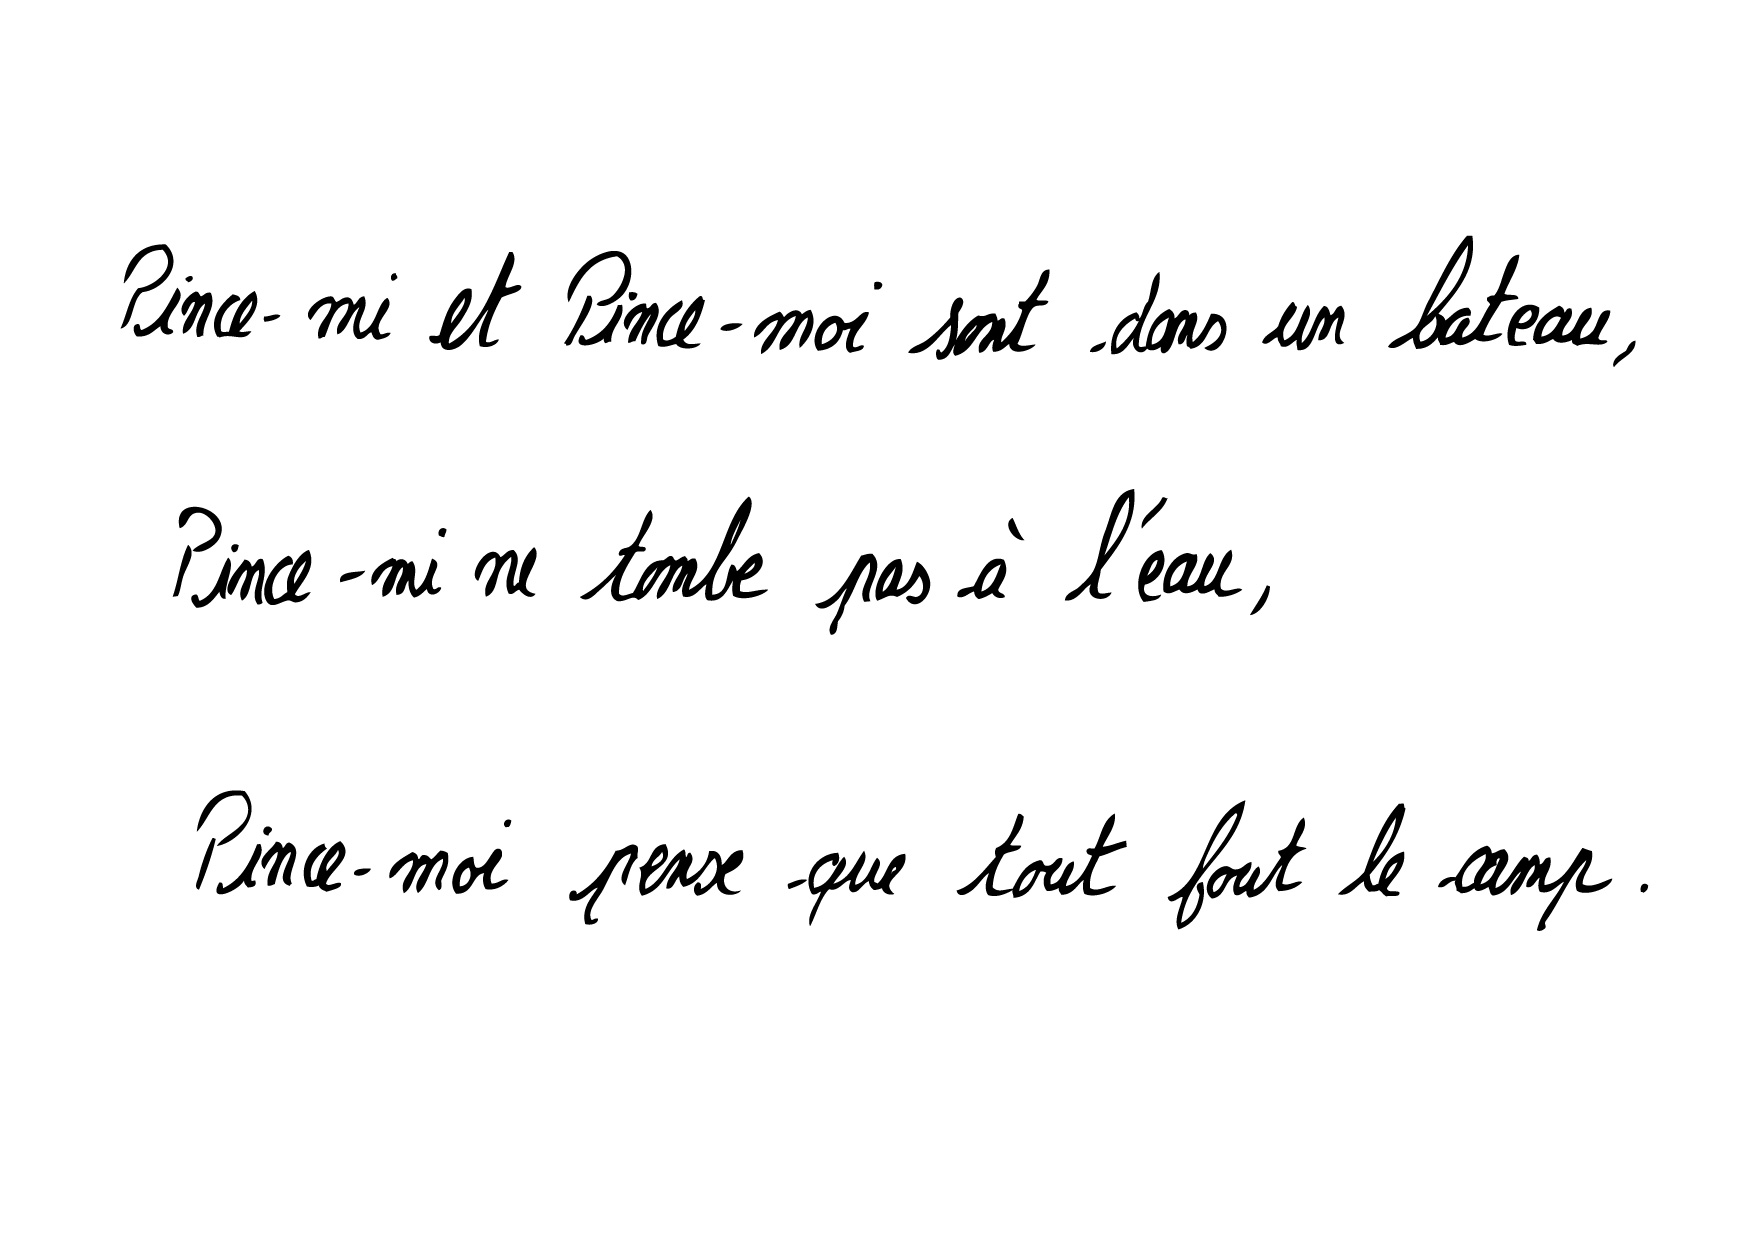 Pince-mi et Pince-moi sont dans un bateau,
Pince-mi ne tombe pas à l'eau,
Pince-moi pense que tout fout le camp.